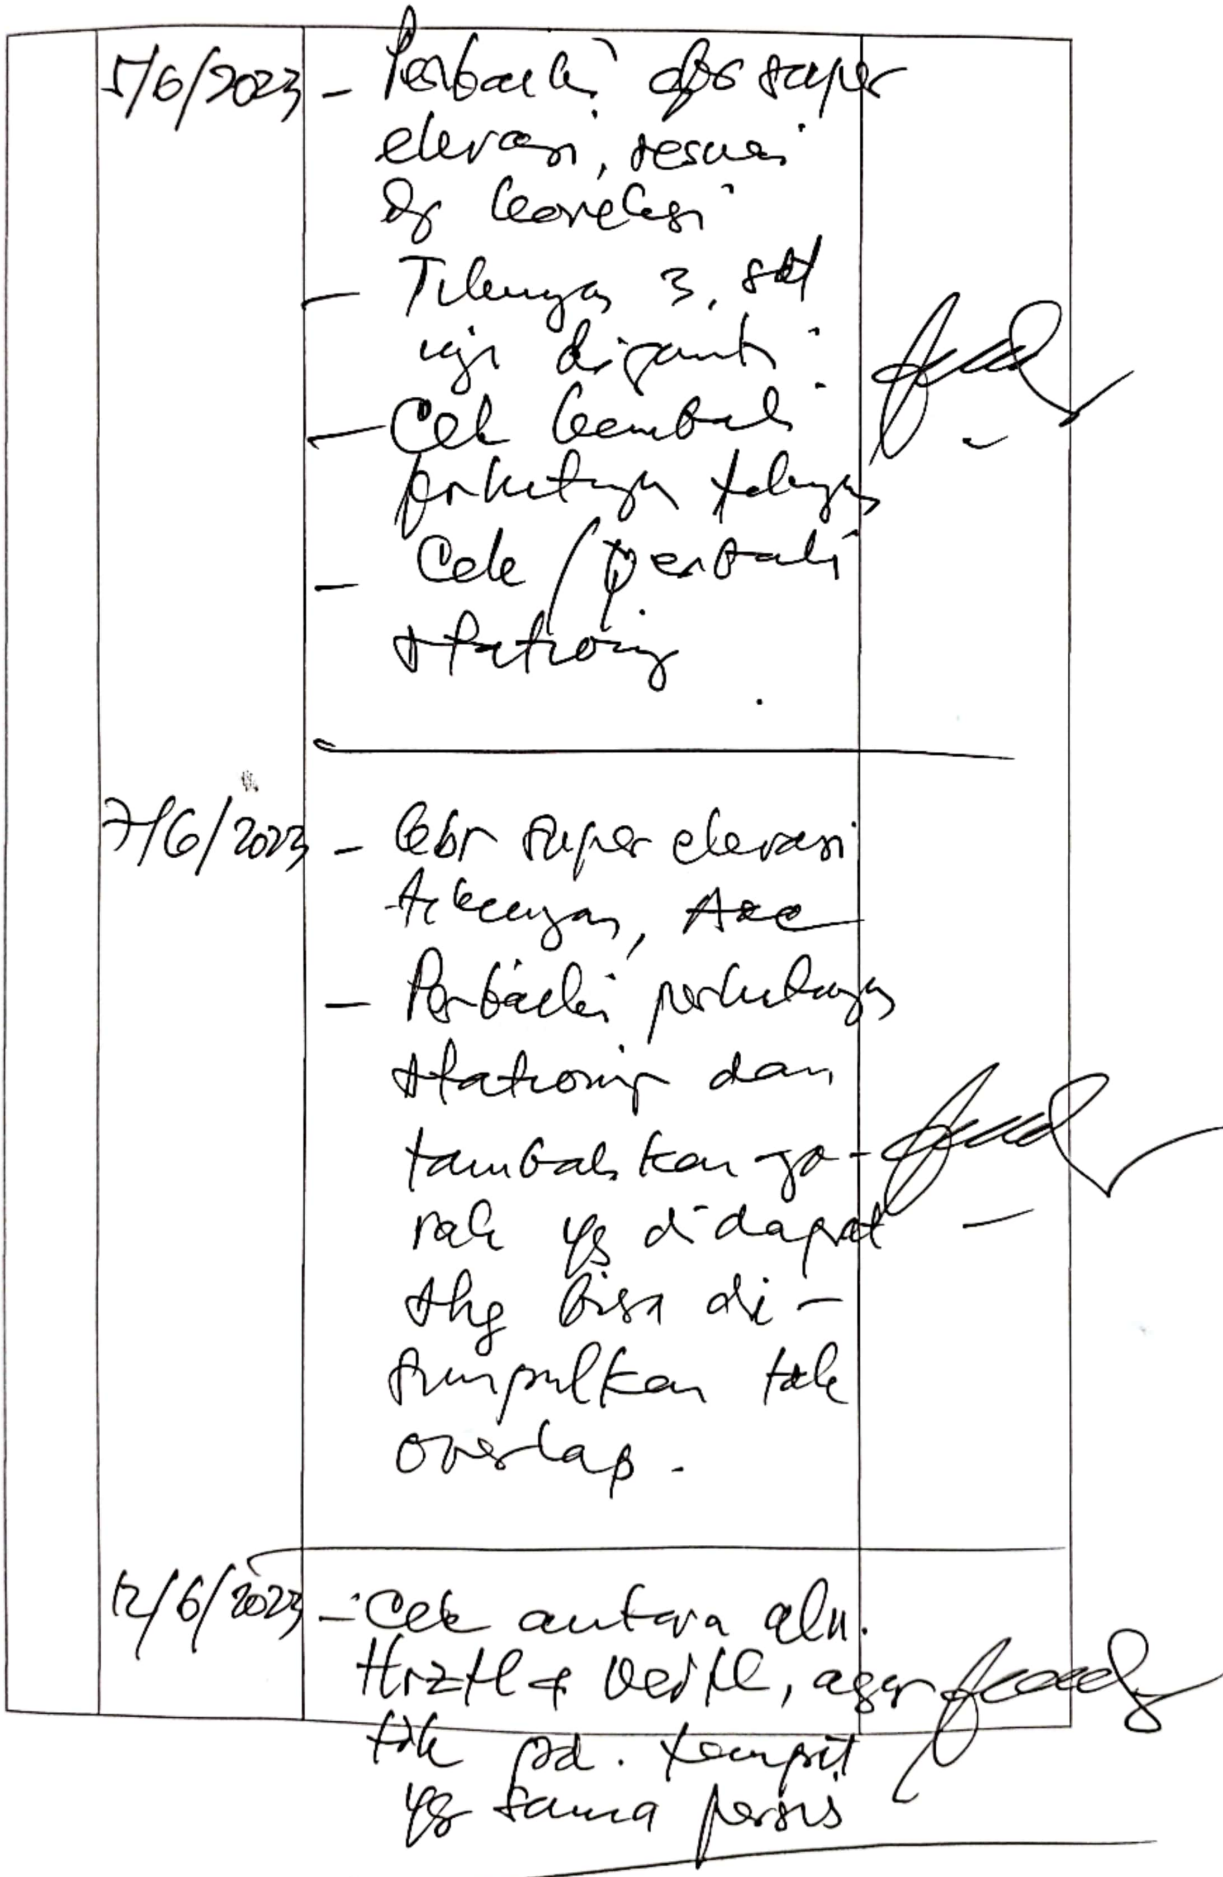 5/6/2023 - Perbaiki dgr super
elevasi, sesuai
dg koreksi
- Tikungan 3, sdt
diganti
- Cek kembali
perhitungan tikungan
- Cek / perbaiki
stationing
7/6/2023 - Gbr super elevasi
tikungan, Acc
- Perbaiki perhitungan
stationing dan
tambahkan ja-
rak yg didapat
shg bisa di-
simpulkan tdk
overlap.
12/6/2023 - Cek antara aln.
Hrztl & Vertkl, agar
tdk pd. tempat
yg sama persis